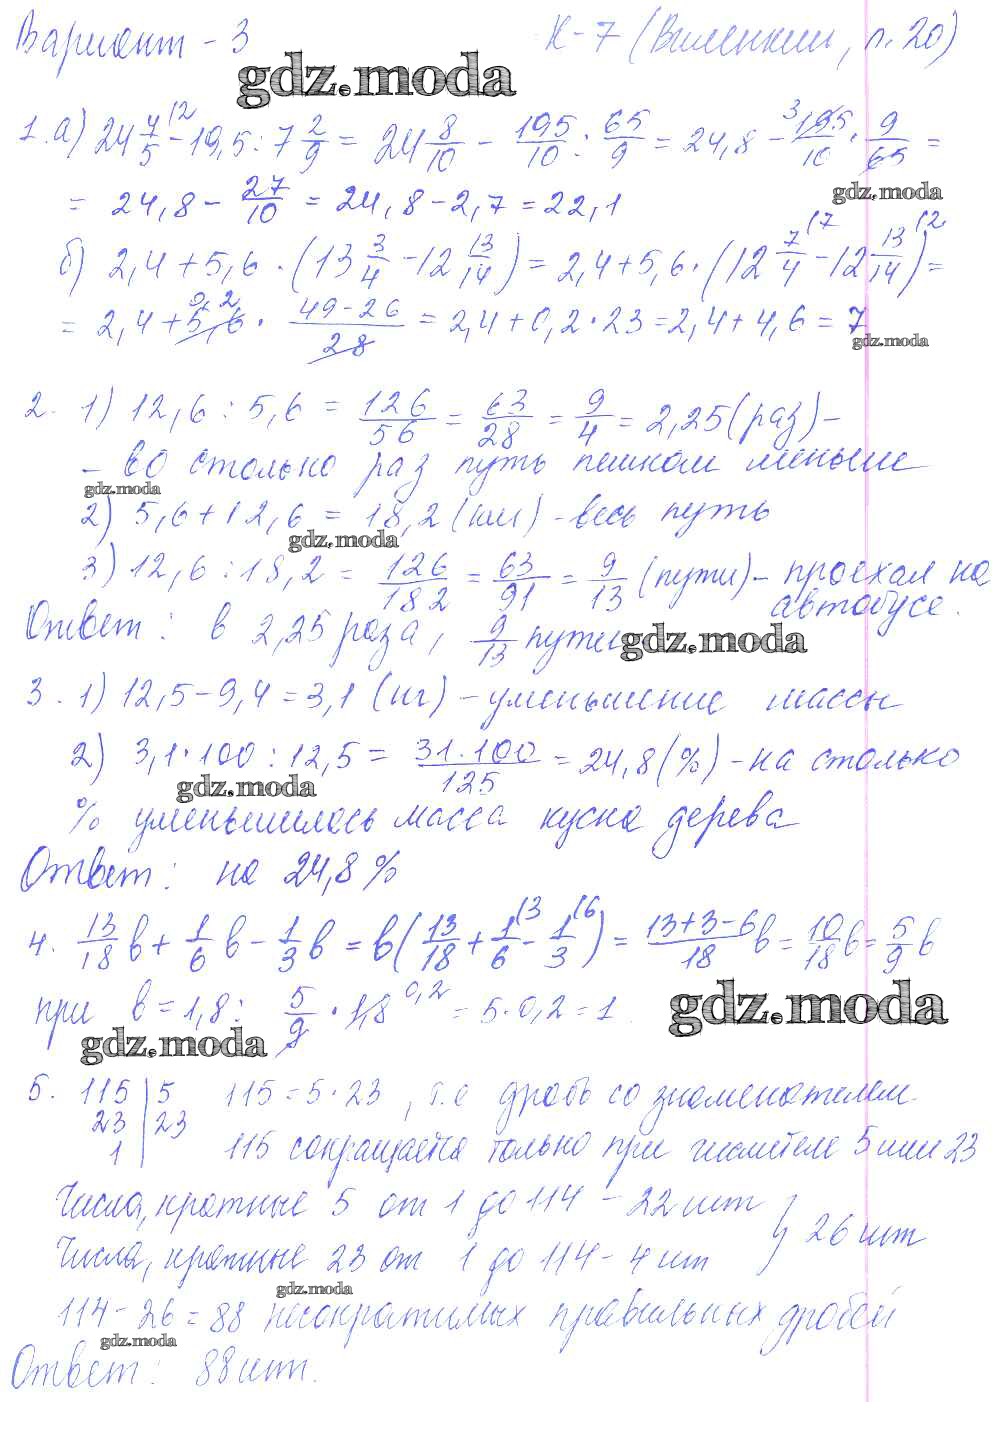 Вариант - 3 К-7 (Виленкин, п. 20)
gdz.moda
1. а) 24 4/5 - 19,5 : 7 2/9 = 24 8/10 - 195/10 : 65/9 = 24,8 - 195/10 · 9/65 =
gdz.moda
= 24,8 - 27/10 = 24,8 - 2,7 = 22,1
б) 2,4 + 5,6 · (13 3/4 - 12 13/14) = 2,4 + 5,6 · (12 7/4 - 12 13/14) =
= 2,4 + 5,6 · 49-26/28 = 2,4 + 0,2 · 23 = 2,4 + 4,6 = 7
gdz.moda
2. 1) 12,6 : 5,6 = 126/56 = 63/28 = 9/4 = 2,25 (раз) -
- во столько раз путь пешком меньше
gdz.moda
2) 5,6 + 12,6 = 18,2 (км) - весь путь
gdz.moda
3) 12,6 : 18,2 = 126/182 = 63/91 = 9/13 (пути) - проехал на
автобусе.
Ответ: в 2,25 раза, 9/13 пути
gdz.moda
3. 1) 12,5 - 9,4 = 3,1 (кг) - уменьшение массы
2) 3,1 · 100 : 12,5 = 31·100/125 = 24,8 (%) - на столько
gdz.moda
% уменьшилось масса куска дерева
Ответ: на 24,8 %
4. 13/18 b + 1/6 b - 1/3 b = b (13/18 + 1/6 - 1/3) = 13+3-6/18 b = 10/18 b = 5/9 b
при b = 1,8: 5/9 · 1,8 = 5 · 0,2 = 1
gdz.moda
gdz.moda
5. 115 | 5 115 = 5 · 23, т.е дробь со знаменателем
23 | 23
1 | 115 сокращается только при числителе 5 или 23
Числа, кратные 5 от 1 до 114 - 22 шт
} 26 шт
Числа, кратные 23 от 1 до 114 - 4 шт
gdz.moda
114 - 26 = 88 несократимых правильных дробей
gdz.moda
Ответ: 88 шт.